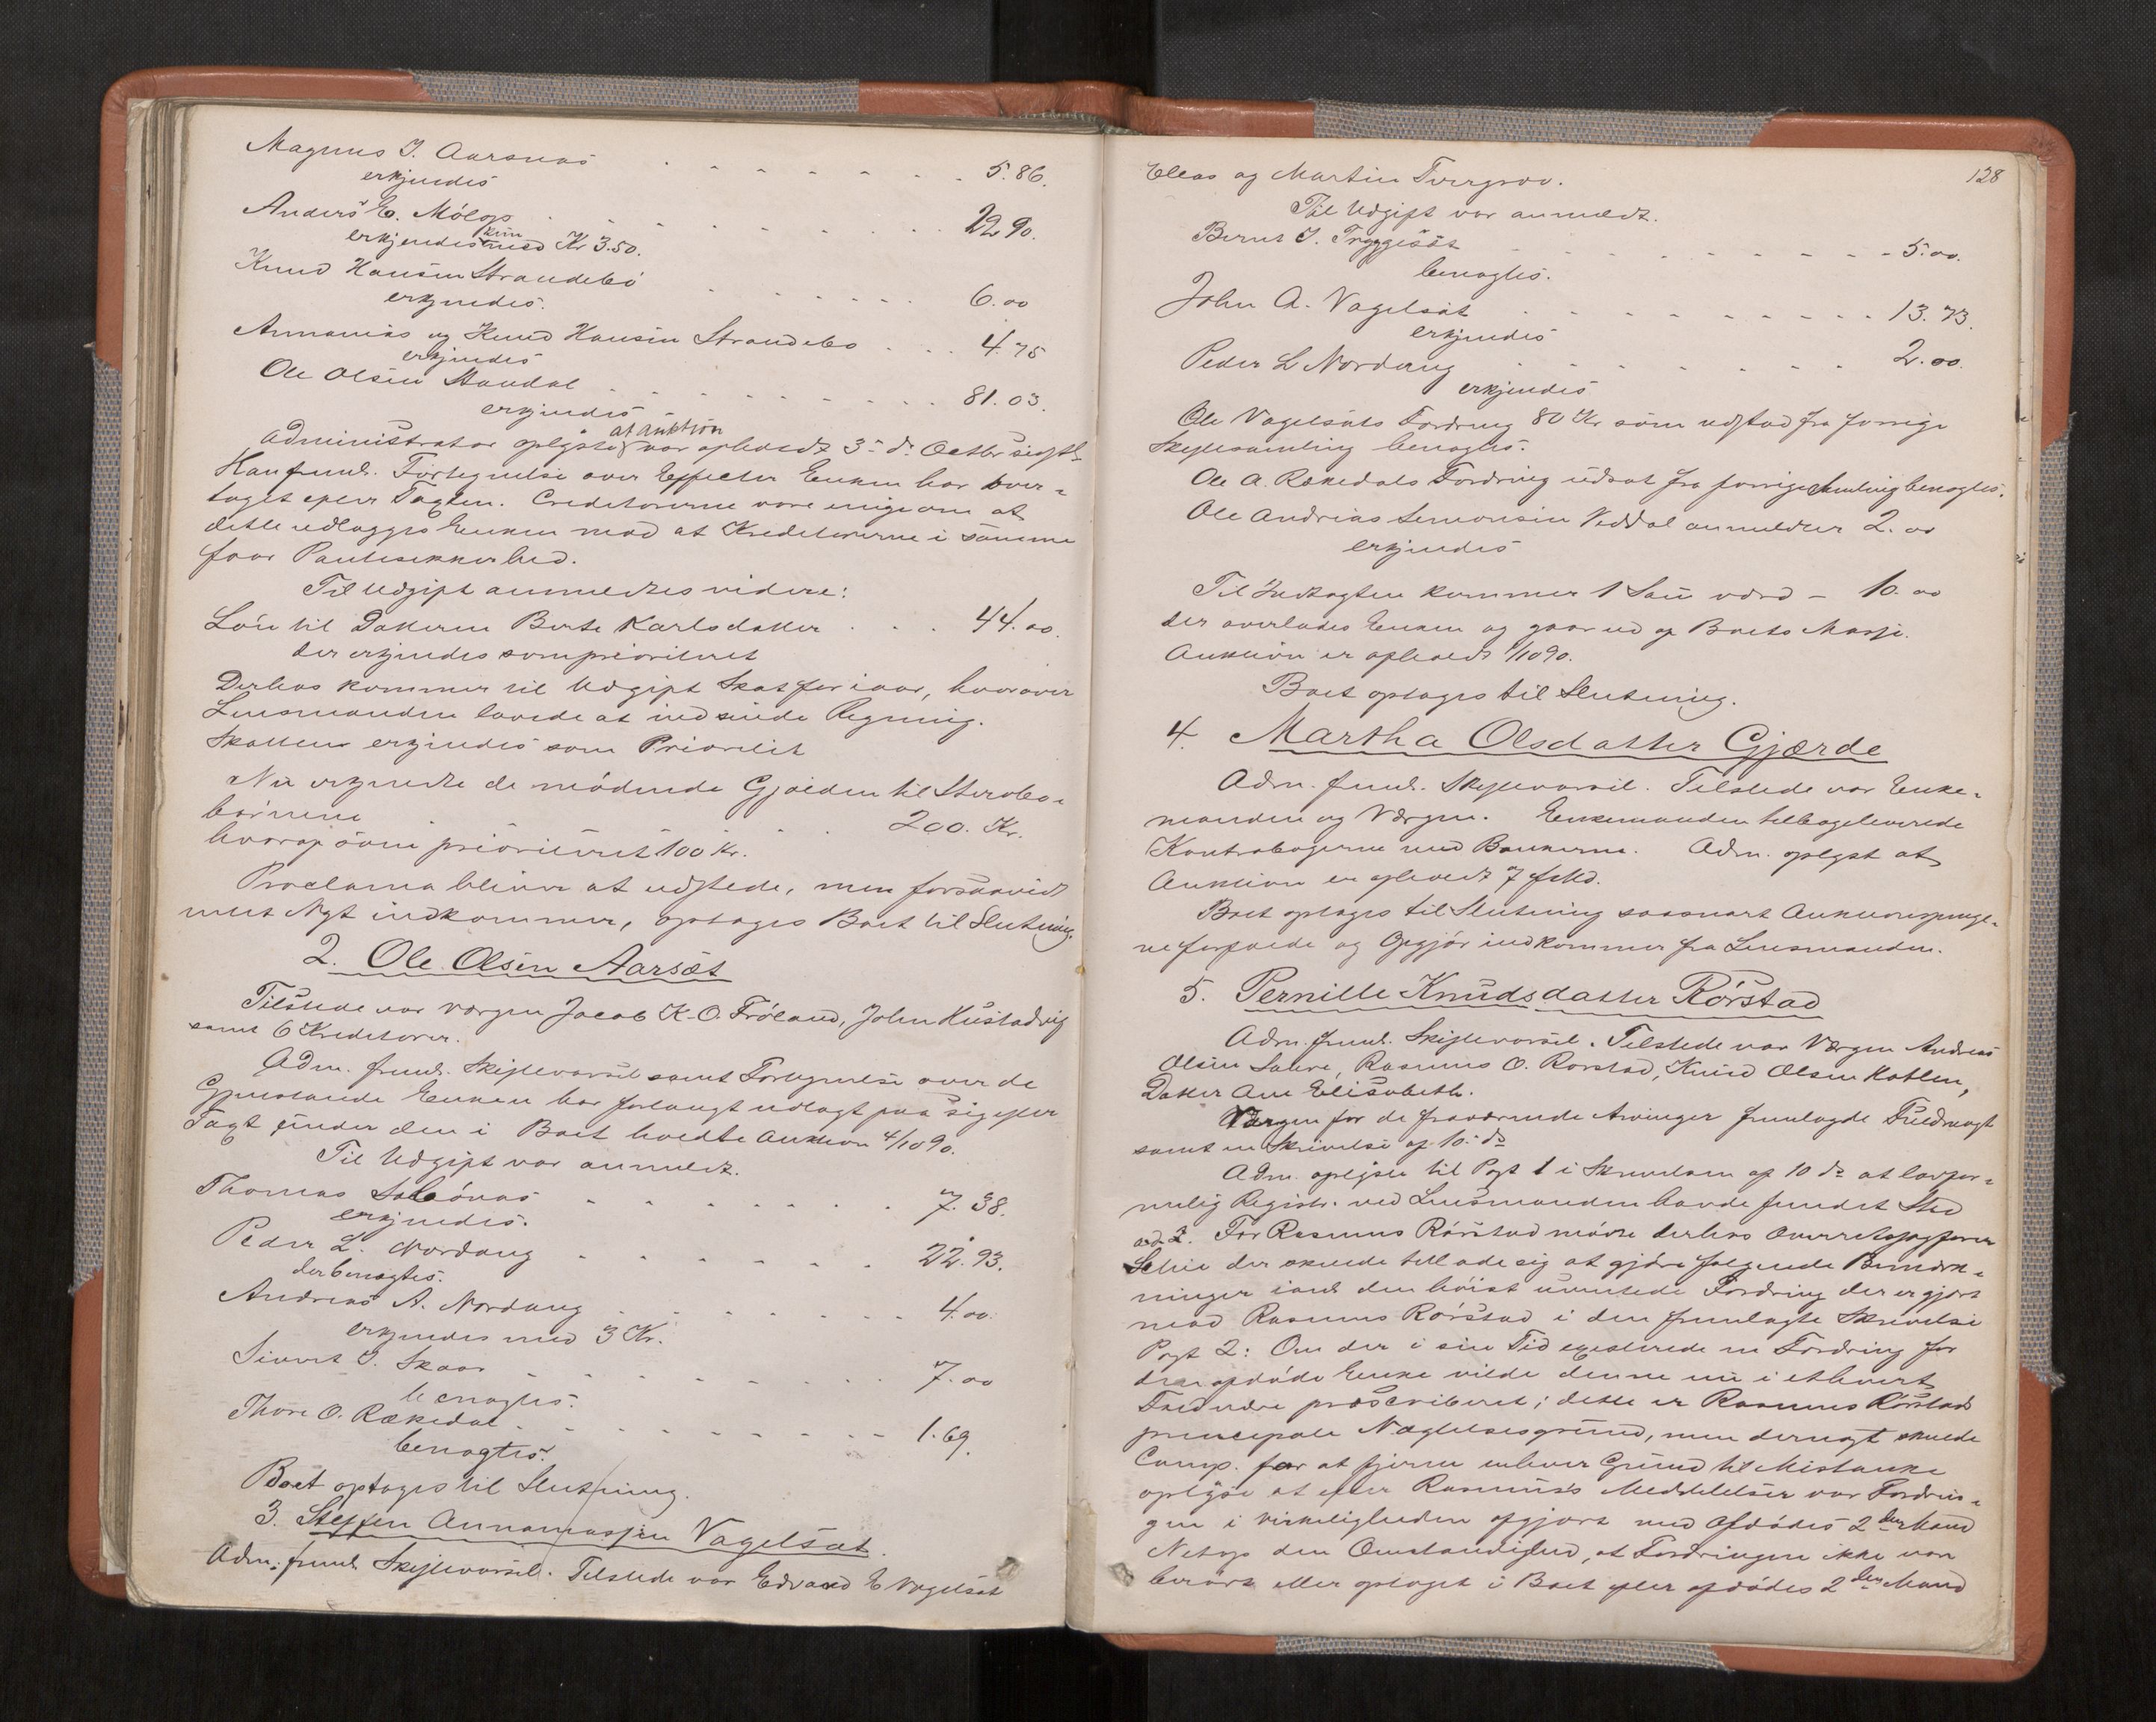 Magnus I. Aarsnes . . . . . . . 5.86.
erkjendes
Anders E. Mölop . . . . . . . 22.90.
erkjendes kun med Kr 3.50.
Knud Hansen Strandebö . . . . . . 6.00
erkjendes.
Annanias og Knud Hansen Strandebø . . . . 4.75
erkjendes
Ole Olsen Standal . . . . . . . . . 81.03.
erkjendes
Administrator oplyste at Auktion var afholdt 3- d. Octbr sidstl.
Han freml. Fortegnelse over Effecter Enken har over-
taget efter Taxten. Creditorerne vare enige om at
dette udlægges Enken mod at Kreditorerne i samme
faar Pantesikkerhed.
Til Udgift anmeldtes videre:
Løn til Datteren Berte Karlsdatter . . . 44.00.
der erkjendes som prioriteret
Derhos kommer til Udgift Skat for iaar, hvorover
Lensmanden lovede at indsende Regning.
Skatten erkjendes som Prioritet
Nu erkjendte de mødende Gjælden til Sterobø-
børnene . . . 200. Kr.
hvoraf som prioriteret 100 Kr.
Proclama bliver at udstede, men forsaavidt
intet Nyt indkommer, optages Boet til Slutning.
2. Ole Olsen Aarsæt
Tilstede var Værgen Jacob K. O. Fröland, John Kustadvig
samt 6 Kreditorer.
Adm. freml. Skiftevarsel samt Fortegnelse over de
Gjenstande Enken har forlangt udlagt paa sig efter
Taxt under den i Boet holdte Auktion 4/10 90.
Til Udgift var anmeldt.
Thomas Sabönæs . . . . . . 7.38.
erkjendes.
Peder L. Nordang . . . . . . 22.93.
der benægtes.
Andreas A. Nordang . . . . . . 4.00.
erkjendes med 3 Kr.
Sivert I. Skaar . . . . . . . 7.00
benægtes.
Thore O. Rækedal . . . . . . . 1.69.
benægtes.
Boet optages til Slutning.
3. Steffen Annaniassen Vagelsæt.
Adm. freml. Skiftevarsel. Tilstede var Edvard E Vagelsæt
128
Elias og Martin Tvergrov.
Til Udgift var anmeldt.
Bernt I. Tryggesæt . . . . . . . . 5.00.
benægtes.
John A. Vagelsæt . . . . . . . . 13.73.
erkjendes
Peder L Nordang . . . . . . 2.00.
erkjendes
Ole Vagelsæts Fordring 80 Kr som udstod fra forrige
Skiftesamling benægtes.
Ole A. Rækedals Fordring udsat fra forrige Samling benægtes.
Ole Andreas Simonsen Veddal anmeldter 2.00
erkjendes
Til Indtægten kommer 1 Sau værd - 10.00
der overlades Enken og gaar ud af Boets Masse.
Auktion er afholdt 1/10 90.
Boet optages til Slutning.
4. Martha Olsdatter Gjærde
Adm. freml. Skiftevarsel. Tilstede var Enke-
manden og Værgen. Enkemanden tilbageleverede
Kontrabøgerne med Bankerne. Adm. oplyst at
Auktion er afholdt 7 ds.
Boet optages til Slutning saasnart Auktionspenge-
ne forfalde og Opgjør indkommer fra Lensmanden.
5. Pernille Knudsdatter Rörstad
Adm. freml. Skiftevarsel. Tilstede var Værgen Andreas
Olsen Saure, Rasmus O. Rørstad, Knud Olsen Hatlen,
Datter Ane Elisabeth.
Værgen for de fraværende Arvinger fremlagde Fuldmagt
samt en Skrivelse af 10. ds
Adm. oplyste til Post 1 i Skrivelsen af 10 ds at lovfor-
melig Registr. ved Lensmanden havde fundet Sted
ad 2. For Rasmus Rörstad mödte derhos Overretssagfører
der skulde tillade sig at gjöre følgende Bemærk-
ninger ianl. den höist uventede Fordring der er gjort
mod Rasmus Rörstad i den fremlagte Skrivelse
Post 2: Om der i sin Tid existerede en Fordring for
den afdöde Enke vilde denne nu i ethvert
Fald være præscriberet; dette er Rasmus Rörstads
principale Nægtelsesgrund, men dernæst skulde
Comp. for at fjerne enhver Grund til Mistanke
oplyse at efter Rasmus's Meddelelser var Fordrin-
gen i Virkeligheden opgjort med Afdödes 2den Mand
Netop den Omstændighed, at Fordringen ikke var
berört eller optaget i Boet efter afdödes 2den Mand